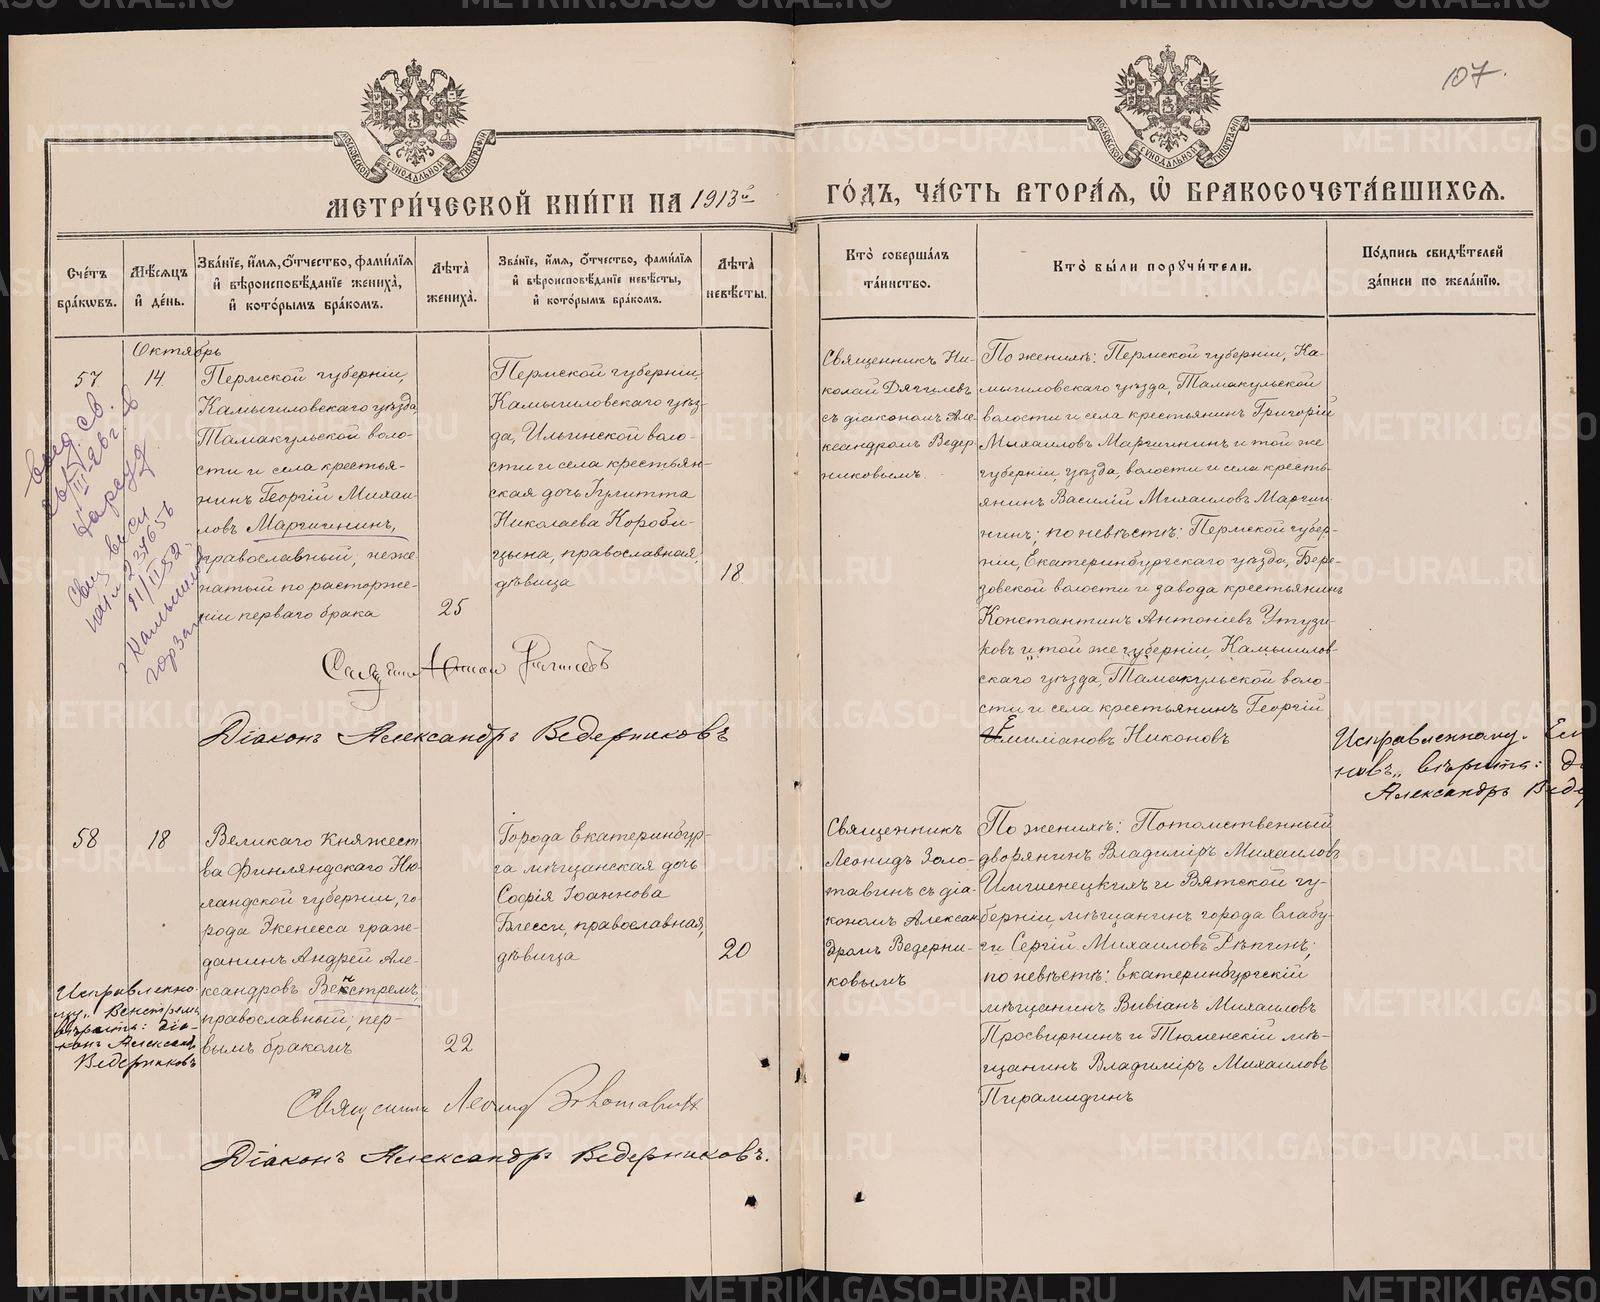 107.
МОСКОВСКОЙ СѴНОДАЛЬНОЙ ТИПОГРАФІИ
МОСКОВСКОЙ СѴНОДАЛЬНОЙ ТИПОГРАФІИ
МЕТРИ́ЧЕСКОЙ КНИ́ГИ НА 1913й
ГО́ДЪ, ЧА́СТЬ ВТОРА́Я, Ѽ БРАКОСОЧЕТА́ВШИХСЯ.
Сче́тъ
бра́кѡвъ.
Мѣ́сяцъ
и҆ де́нь.
Зва́нїе, и҆́мя, ѻ҆́тчество, фами́лїя
и҆ вѣроисповѣ́данїе жениха̀,
и҆ кото́рымъ бра́комъ.
Лѣта̀
жениха̀.
Зва́нїе, и҆́мя, ѻ҆́тчество, фами́лїя
и҆ вѣроисповѣ́данїе невѣ́сты,
и҆ кото́рымъ бра́комъ.
Лѣта̀
невѣ́сты.
Кто̀ соверша́лъ
та́инство.
Кто̀ бы́ли поручи́тели.
По́дпись свидѣ́телей
за́писи по жела́нїю.
57
Октябрь
14
Пермской губерніи,
Камышловскаго уѣзда,
Тамакульской воло-
сти и села крестья-
нинъ Георгій Михаи-
ловъ Маргининъ,
православный, неже-
натый по расторже-
ніи перваго брака
25
Пермской губерніи,
Камышловскаго уѣз-
да, Ильинской воло-
сти и села крестьян-
ская дочь Іулитта
Николаева Короби-
цына, православная,
дѣвица
18
Священникъ Ни-
колай Дягилевъ
съ діакономъ Але-
ксандромъ Ведер-
никовымъ.
По женихѣ: Пермской губерніи, Ка-
мышловскаго уѣзда, Тамакульской
волости и села крестьянинъ Григорій
Михаиловъ Маргининъ и той же
губерніи, уѣзда, волости и села кресть-
янинъ Василій Михаиловъ Марги-
нинъ; по невѣстѣ: Пермской губер-
ніи, Екатеринбургскаго уѣзда, Бере-
зовской волости и завода крестьянинъ
Константинъ Антоніевъ
и той же губерніи, Камышлов-
скаго уѣзда, Тамакульской воло-
сти и села крестьянинъ Георгій
Емиліановъ Никоновъ
Исправленному „Ем
новъ„ вѣрить: ді
Александръ Веде
Діаконъ Александръ Ведерниковъ
58
18
Великаго Княжест-
ва Финляндскаго Ню-
ландской губерніи, го-
рода Экенесса граж-
данинъ Андрей Але-
ксандровъ Венстремъ,
православный, пер-
вымъ бракомъ
22
Города Екатеринбур-
га мѣщанская дочь
Софія Іоаннова
Блесси, православная,
дѣвица
20
Священникъ
Леонидъ Золо-
тавинъ съ діа-
кономъ Алексан-
дромъ Ведерни-
ковымъ
По женихѣ: Потомственный
дворянинъ Владиміръ Михаиловъ
Имшенецкій и Вятской гу-
берніи, мѣщанинъ города Елабу-
ги Сергій Михаиловъ Рѣпинъ;
по невѣстѣ: Екатеринбургскій
мѣщанинъ Вивіанъ Михаиловъ
Просвирнинъ и Тюменскій мѣ-
щанинъ Владиміръ Михаиловъ
Пирамидинъ
Исправленно-
му „Венстремъ„
вѣрить: діа-
конъ Александръ
Ведерниковъ
Священникъ Леонид Золотавинъ
Діаконъ Александръ Ведерниковъ.
METRIKI.GASO-URAL.RU